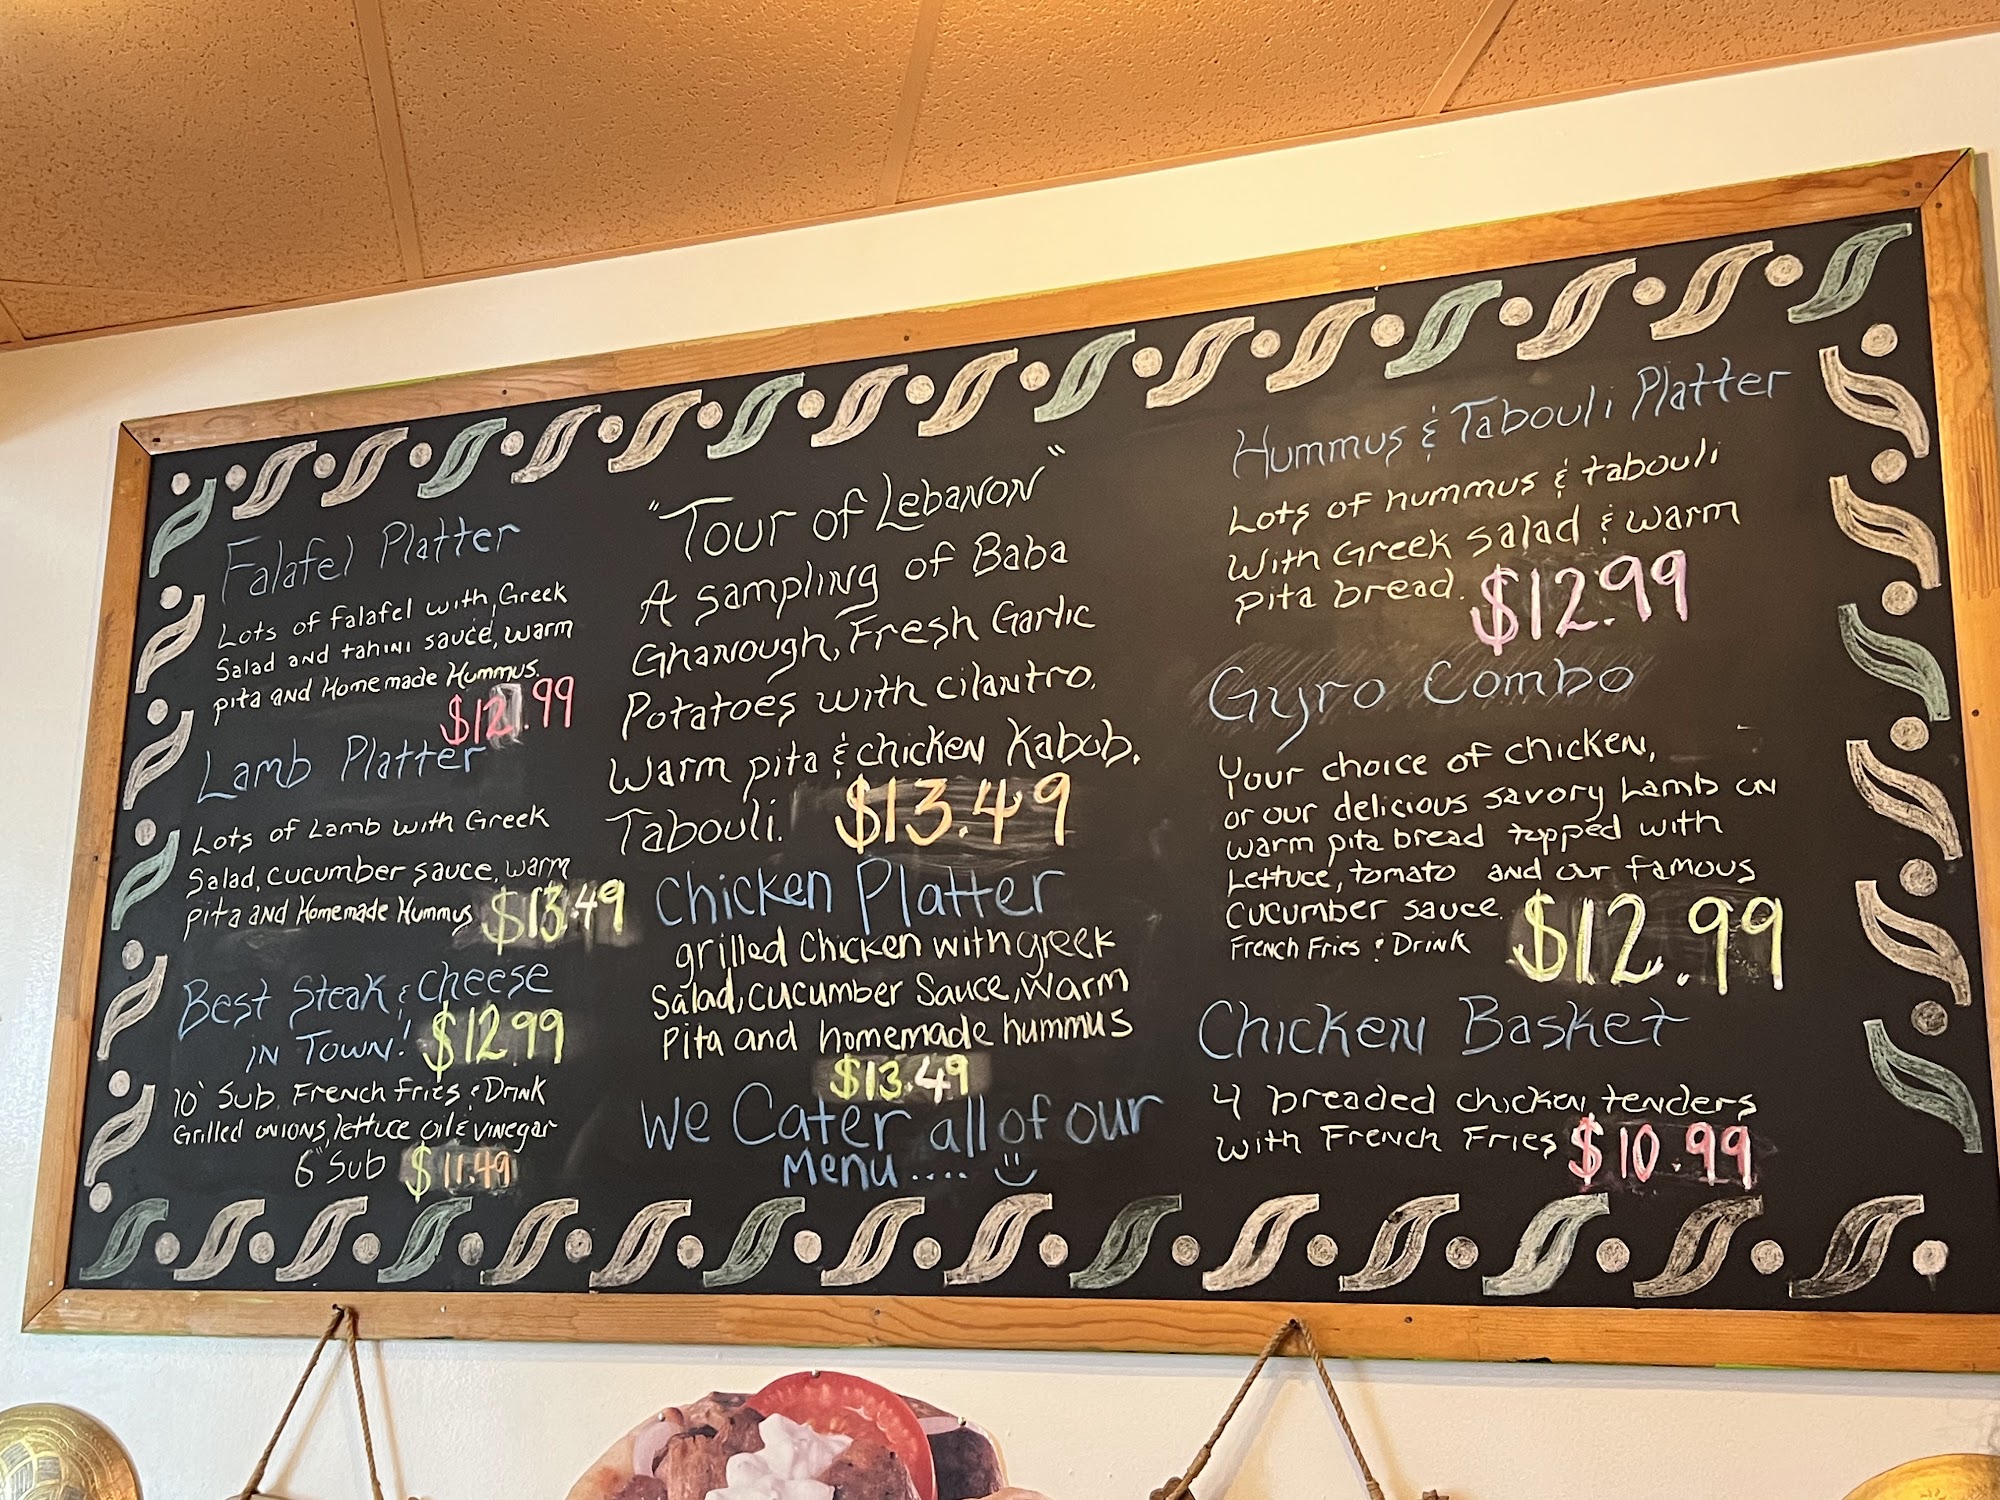 Falafel Platter
Lots of Falafel with Greek
Salad and tahini sauce, warm
pita and Homemade Hummus.
$12.99
Lamb Platter
Lots of Lamb with Greek
Salad, cucumber sauce, warm
pita and Homemade Hummus $13.49
Best Steak & Cheese
in Town! $12.99
10" Sub, French Fries & Drink
Grilled onions, lettuce oil & vinegar
6" Sub $11.49
"Tour of Lebanon"
A sampling of Baba
Ghanough, Fresh Garlic
Potatoes with cilantro,
Warm pita & chicken Kabob.
Tabouli. $13.49
Chicken Platter
grilled Chicken with greek
Salad, cucumber Sauce, Warm
Pita and homemade hummus
$13.49
We Cater all of our
Menu....
Hummus & Tabouli Platter
Lots of hummus & tabouli
With Greek Salad & warm
pita bread. $12.99
Gyro Combo
Your choice of chicken,
or our delicious savory Lamb on
warm pita bread topped with
Lettuce, tomato and our famous
cucumber sauce. $12.99
French Fries & Drink
Chicken Basket
4 breaded chicken tenders
with French Fries $10.99